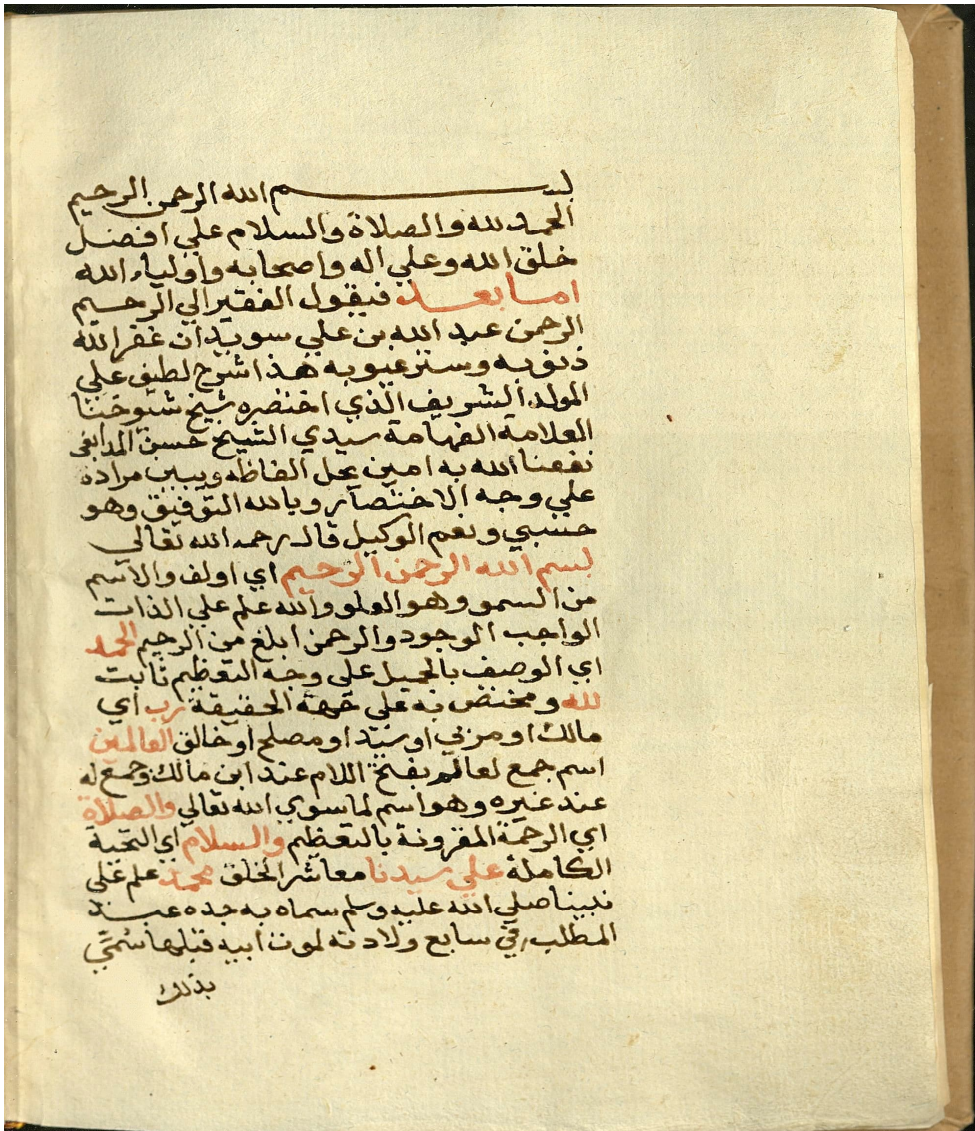 بسم الله الرحمن الرحيم
الحمد لله والصلاة والسلام علي افضل
خلق الله وعلي اله واصحابه واولياء الله
اما بعد فيقول الفقير الي الرحيم
الرحمن عبد الله بن علي سويدان غفر الله
ذنوبه وستر عيوبه هذا شرح لطيف علي
المولد الشريف الذي اختصره شيخ شيوخنا
العلامة الفهامة سيدي الشيخ حسن المدابغي
نفعنا الله به امين يحل الفاظه ويبين مراده
علي وجه الاختصار وبالله التوفيق وهو
حسبي ونعم الوكيل قال رحمه الله تعالي
بسم الله الرحمن الرحيم اي اولف والاسم
من السمو وهو العلو والله علم علي الذات
الواجب الوجود والرحمن ابلغ من الرحيم الحمد
اي الوصف بالجميل علي وجه التعظيم ثابت
لله ومختص به علي جهة الحقيقة رب اي
مالك او مربي او سيد او مصلح او خالق العالمين
اسم جمع لعالم بفتح اللام عند ابن مالك وجمع له
عند غيره وهو اسم لما سوي الله تعالي والصلاة
اي الرحمة المقرونة بالتعظيم والسلام اي التحية
الكاملة علي سيدنا معاشر الخلق محمد علم علي
نبينا صلي الله عليه وسلم سماه به جده عبد
المطلب في سابع ولادته لموت ابيه قبلها سُمّيَ
بذلك